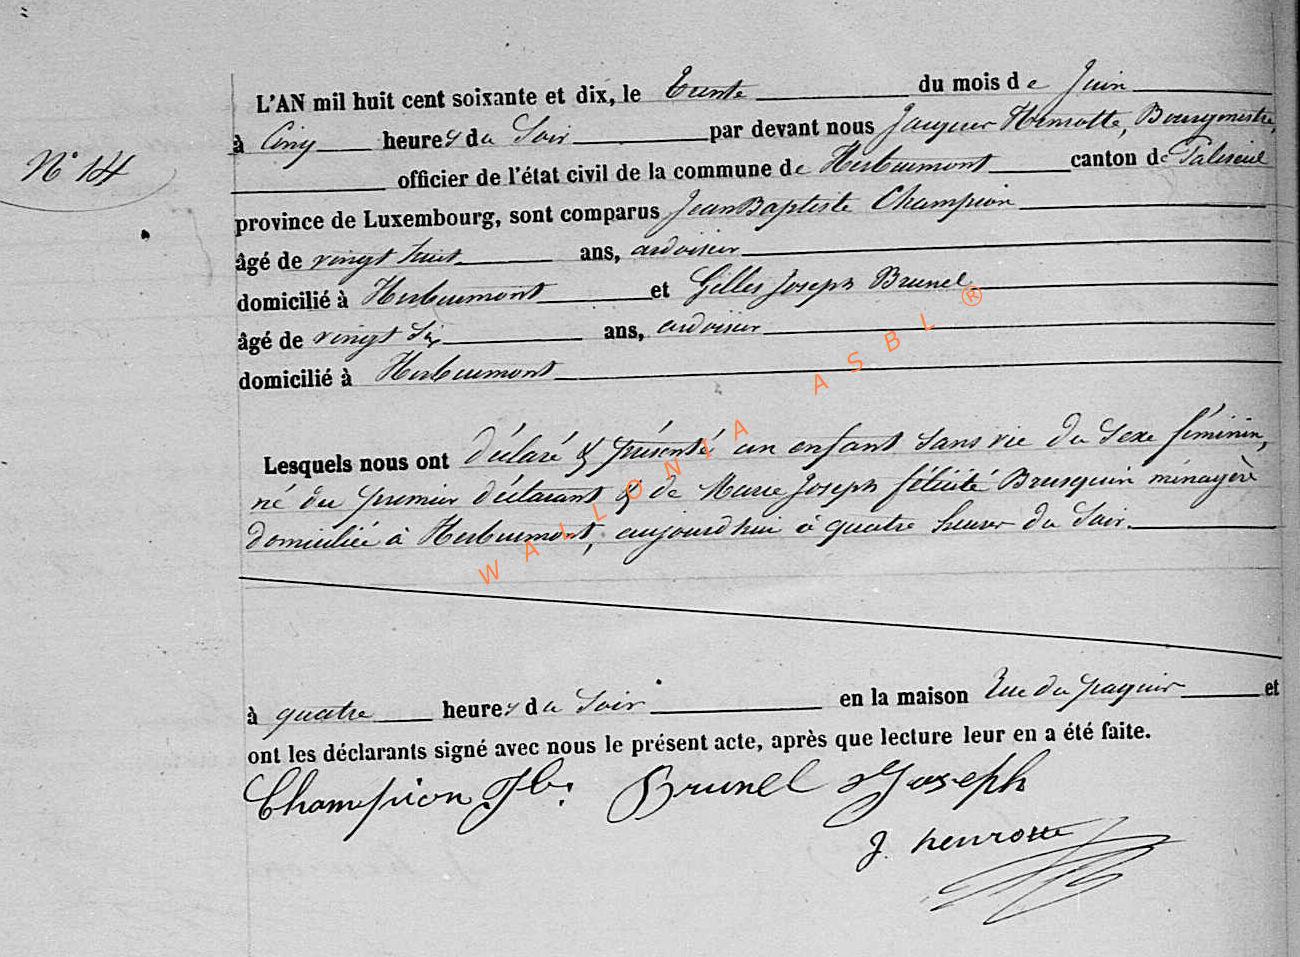 L'AN mil huit cent soixante et dix, le trente du mois de Juin
à Cinq heures du Soir par devant nous Jacques Henrotte, Bourgmestre,
N° 14
officier de l'état civil de la commune de Herbeumont canton de Paliseul
province de Luxembourg, sont comparus Jean Baptiste Champion
âgé de vingt huit ans, ardoisier
domicilié à Herbeumont et Gilles Joseph Brunel
âgé de vingt six ans, ardoisier
domicilié à Herbeumont
Lesquels nous ont déclaré & présenté un enfant sans vie du sexe féminin,
né du premier déclarant & de Marie Joseph félicité Brusquin ménagère
domiciliée à Herbeumont, aujourd'hui à quatre heures du Soir.
WALLONIA ASBL ®
à quatre heures du Soir en la maison Rue du paquis et
ont les déclarants signé avec nous le présent acte, après que lecture leur en a été faite.
Champion Jb. Brunel Joseph
J. henrotte